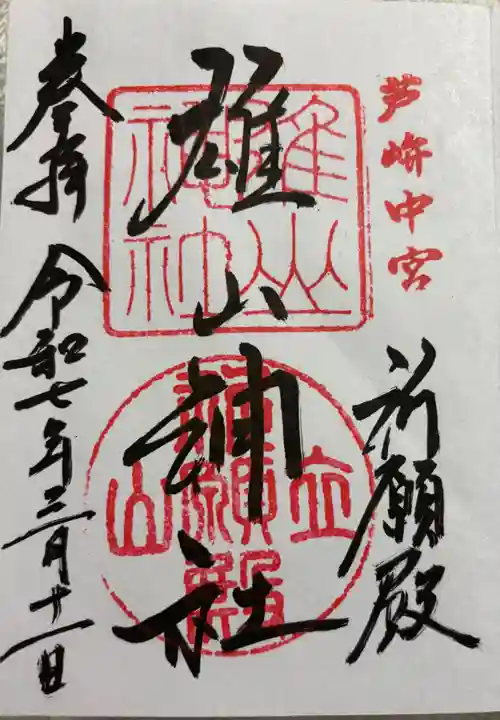 芦峅中宮
祈願殿
雄山神社
雄山
神社
立山
祈願殿
奉拝 令和七年三月十一日